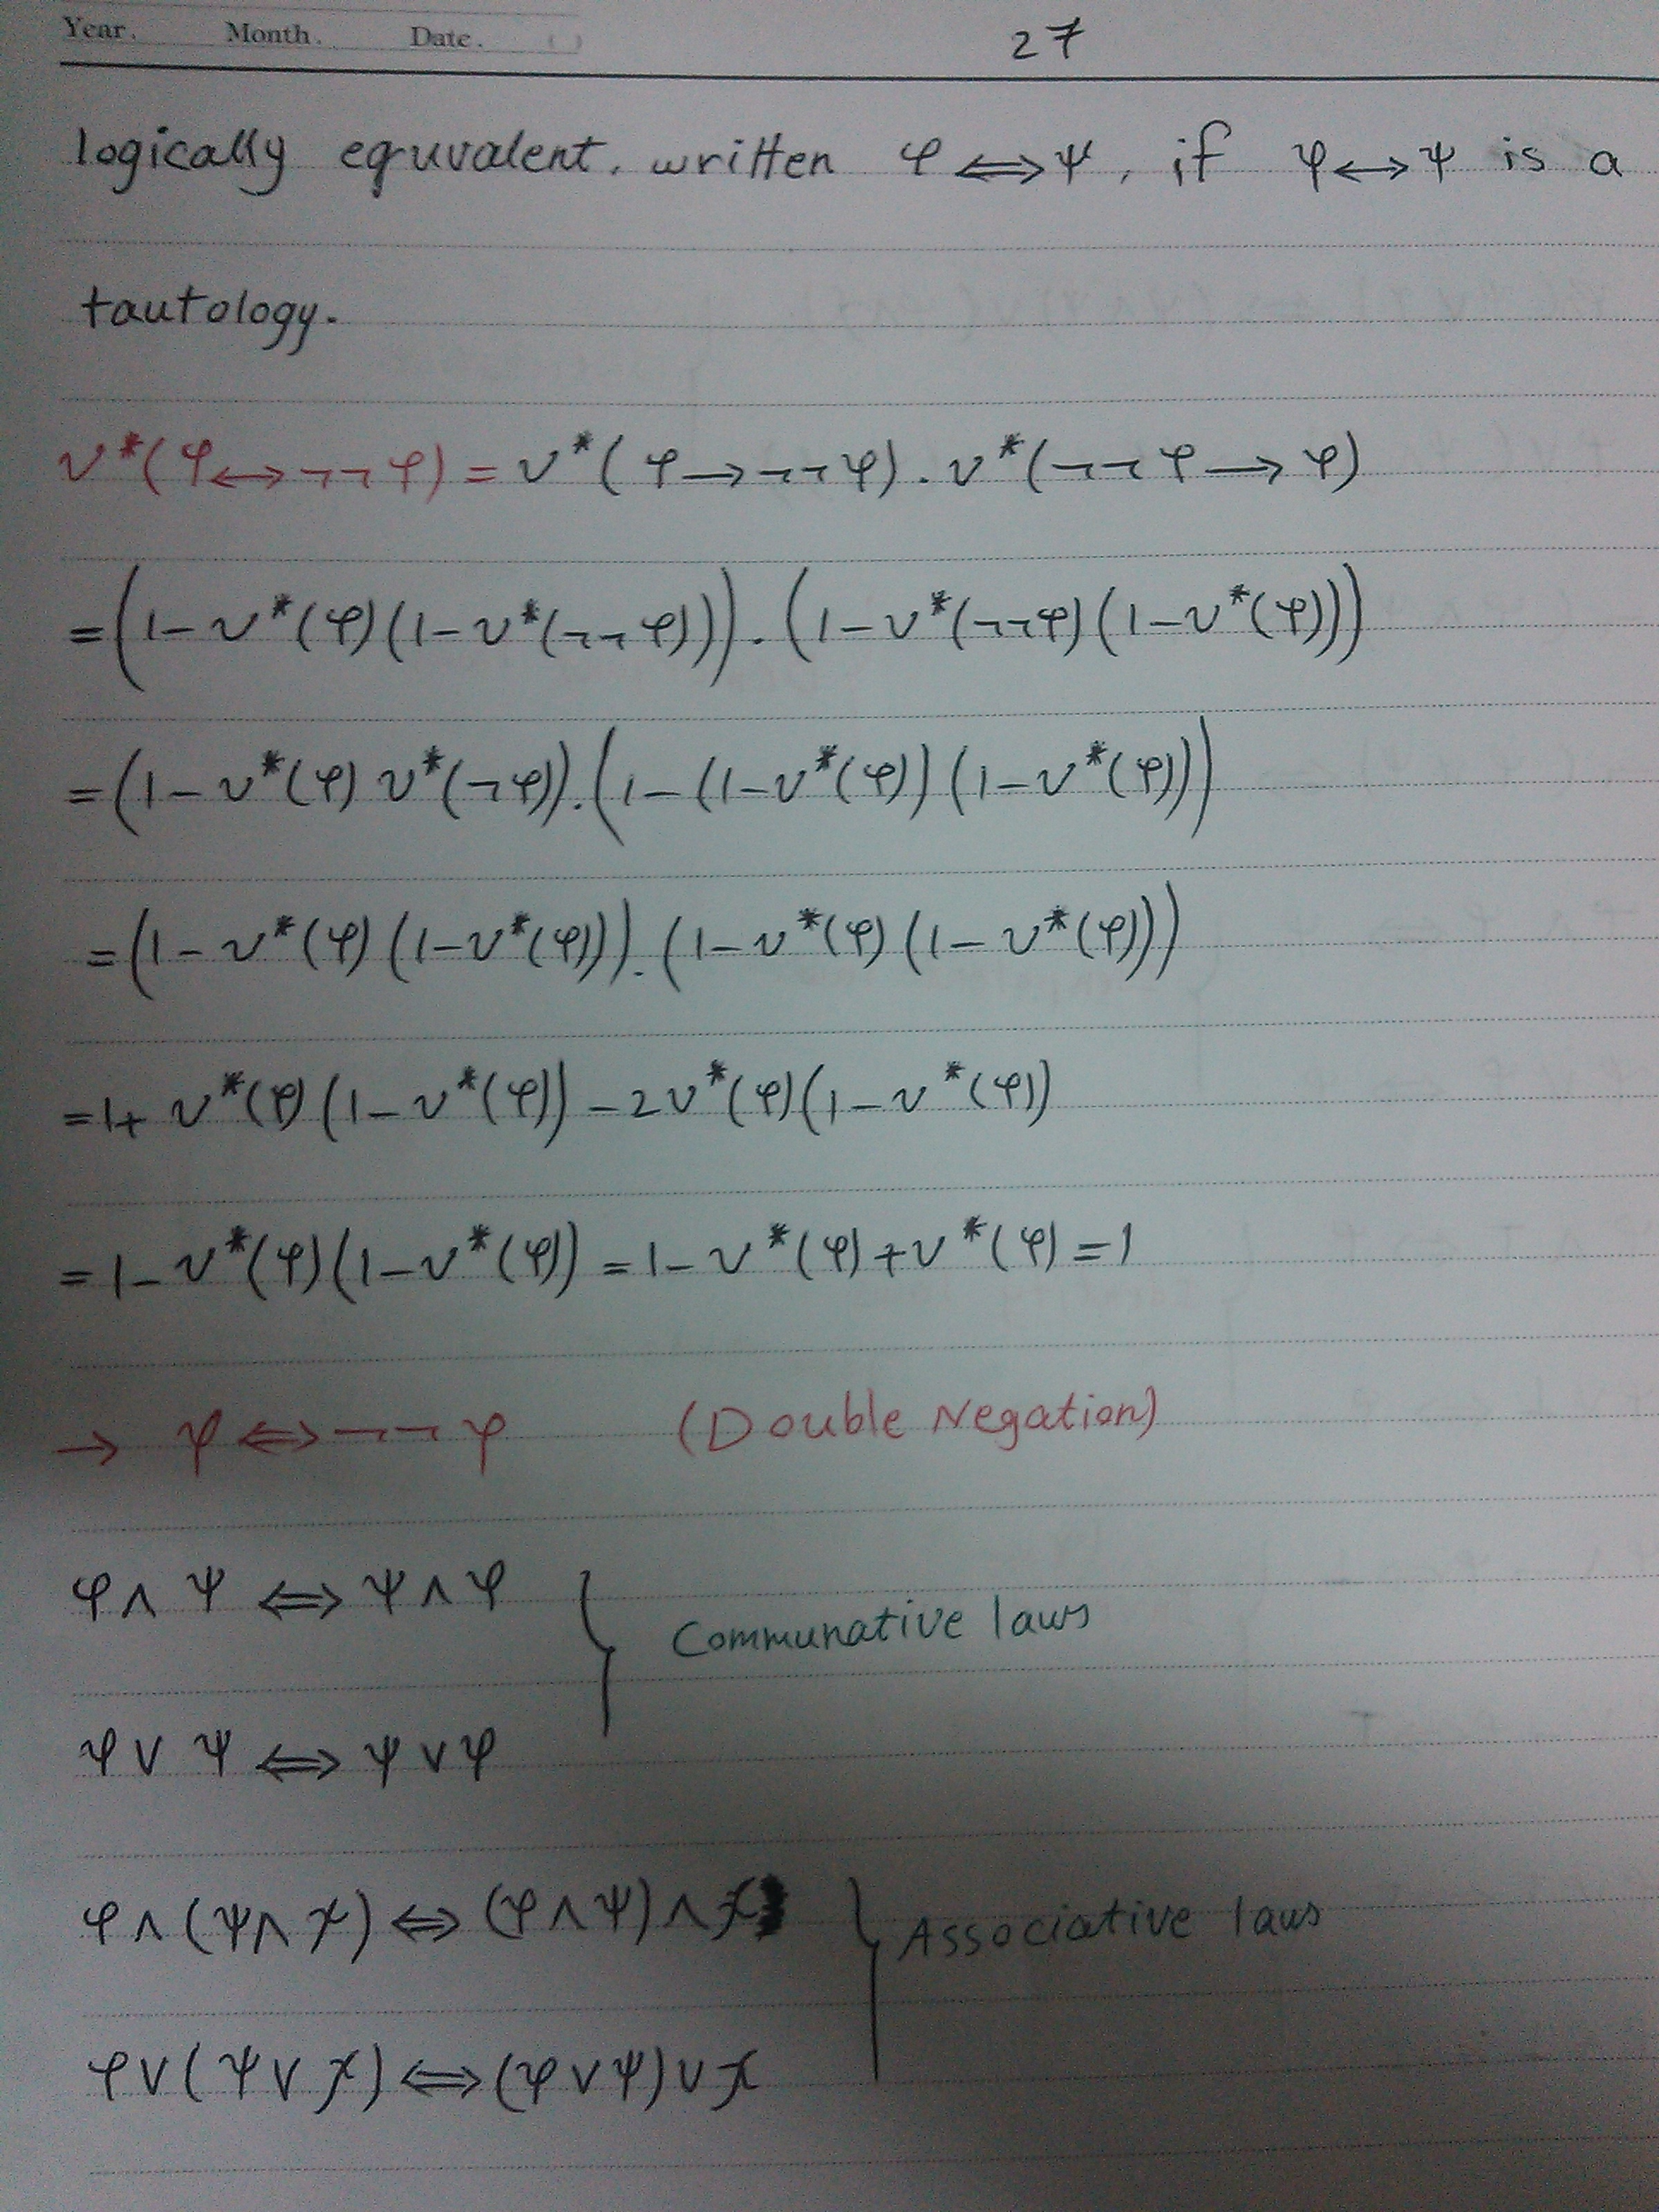 Year. Month. Date. ( )
27
logically equvalent. written φ ⟺ ψ, if φ ⟷ ψ is a
tautology.
ν*(φ ⟷ ¬¬φ) = ν*(φ ⟶ ¬¬φ) . ν*(¬¬φ ⟶ φ)
= (1 - ν*(φ)(1 - ν*(¬¬φ))) . (1 - ν*(¬¬φ)(1 - ν*(φ)))
= (1 - ν*(φ) ν*(¬φ)) . (1 - (1 - ν*(φ))(1 - ν*(φ)))
= (1 - ν*(φ)(1 - ν*(φ))) . (1 - ν*(φ)(1 - ν*(φ)))
= 1 + ν*(φ)(1 - ν*(φ)) - 2ν*(φ)(1 - ν*(φ))
= 1 - ν*(φ)(1 - ν*(φ)) = 1 - ν*(φ) + ν*(φ) = 1
→ φ ⟺ ¬¬φ (Double Negation)
φ ∧ ψ ⟺ ψ ∧ φ
Communative laws
φ ∨ ψ ⟺ ψ ∨ φ
φ ∧ (ψ ∧ χ) ⟺ (φ ∧ ψ) ∧ χ
Associative laws
φ ∨ (ψ ∨ χ) ⟺ (φ ∨ ψ) ∨ χ